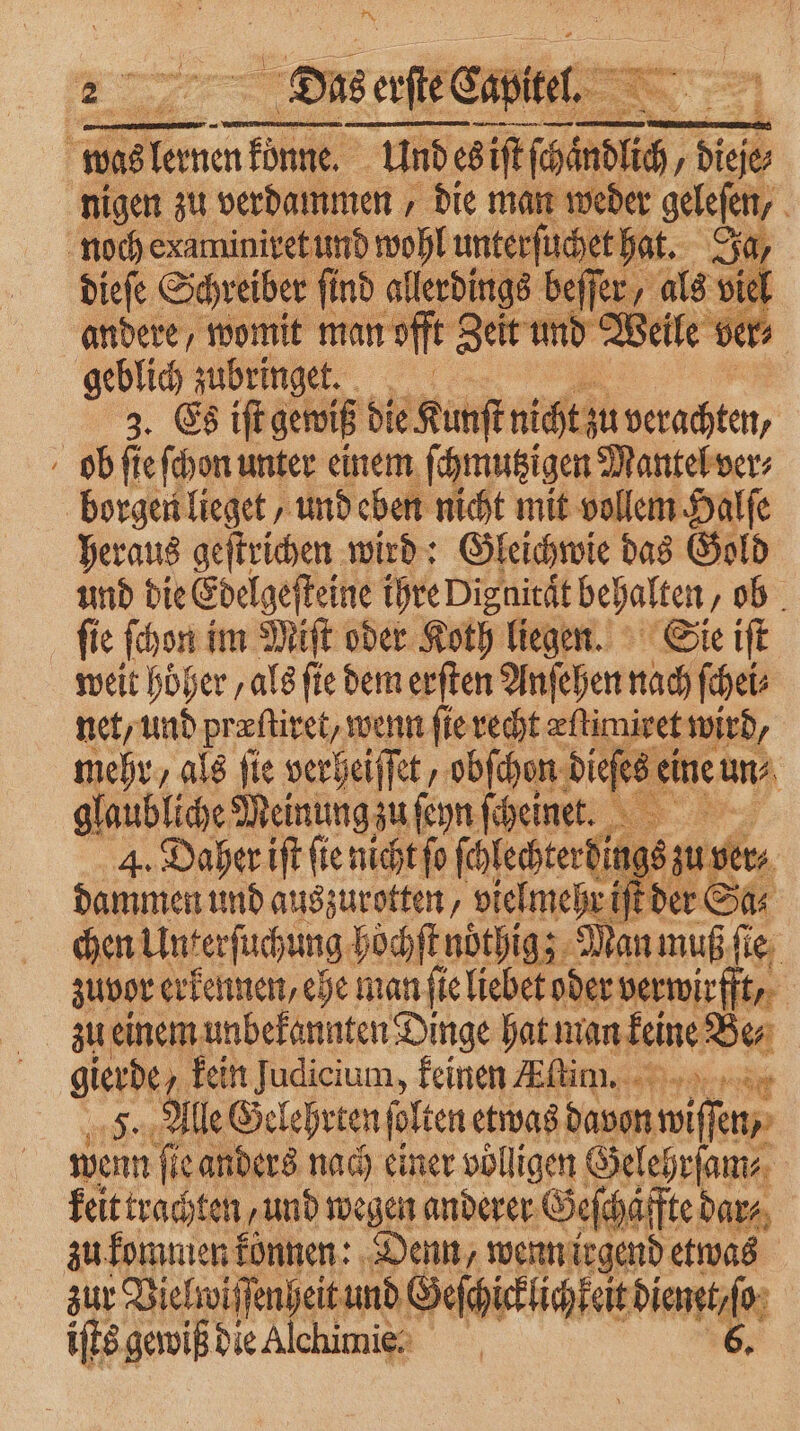 2 Das erſte Capitel.
was lernen koͤnne. Und es iſt ſchaͤndlich, dieje⸗
nigen zu verdammen, die man weder geleſen,
noch examiniret und wohl unterſuchet hat. Ja,
dieſe Schreiber ſind allerdings beſſer, als viel
andere, womit man offt Zeit und Weile ver⸗
geblich zubringet.
3. Es iſt gewiß die Kunſt nicht zu verachten,
ob ſie ſchon unter einem ſchmutzigen Mantel ver⸗
borgen lieget, und eben nicht mit vollem Halſe
heraus geſtrichen wird: Gleichwie das Gold
und die Edelgeſteine ihre Dignitaͤt behalten, ob
ſie ſchon im Miſt oder Koth liegen. Sie iſt
weit hoͤher, als ſie dem erſten Anſehen nach ſchei⸗
net, und præſtiret, wenn ſie recht æſtimiret wird,
mehr, als ſie verheiſſet, obſchon dieſes eine un⸗
glaubliche Meinung zu ſeyn ſcheinet.
4. Daher iſt ſie nicht ſo ſchlechterdings zu ver⸗
dammen und auszurotten, vielmehr iſt der Sa⸗
chen Unterſuchung hoͤchſt noͤthig; Man muß ſie
zuvor erkennen, ehe man ſie liebet oder verwirfft,
zu einem unbekannten Dinge hat man keine Be⸗
gierde, kein Judicium, keinen Æſtim.
5. Alle Gelehrten ſolten etwas davon wiſſen,
wenn ſie anders nach einer voͤlligen Gelehrſam⸗
keit trachten, und wegen anderer Geſchaͤffte dar⸗
zu kommen koͤnnen: Denn, wenn irgend etwas
zur Vielwiſſenheit und Geſchicklichkeit dienet, ſo
iſts gewiß die Alchimie. 6.